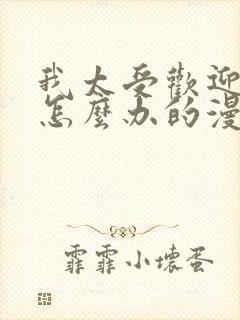 我太受歡迎
怎麼办的漫
霏霏小壞蛋